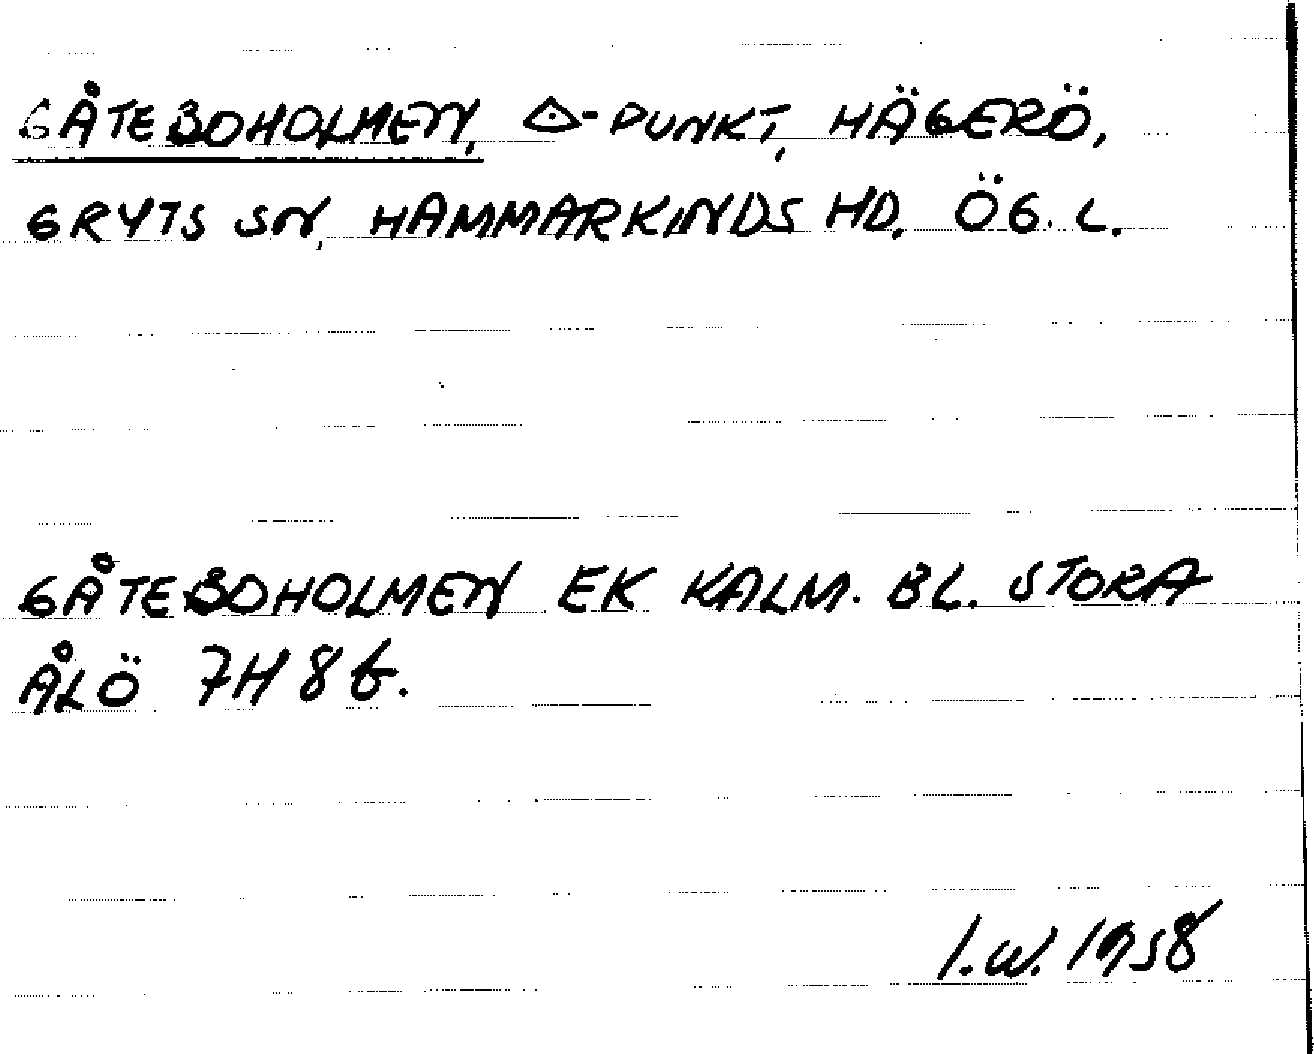 GÅTEBOHOLMEN, △-PUNKT, HÄGERÖ,
GRYTS SN, HAMMARKINDS HD. ÖG. L.
GÅTEBOHOLMEN EK KALM. BL. STORA
ÅLÖ 7H 8b.
I.W. 1958